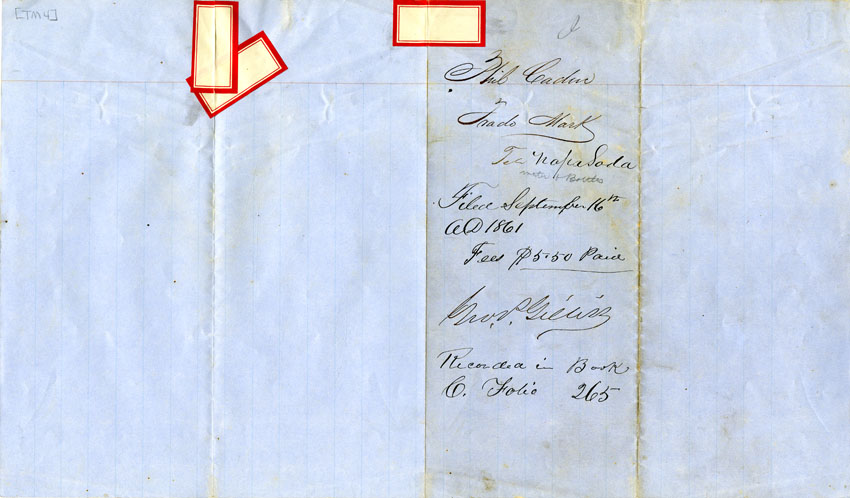 [TM4]
Phil Caduc
Trade Mark
For Napa Soda
water & Bottles
Filed September 16th
AD 1861
Fees $5.50 Paid
Recorded in Book
C. Folio 265